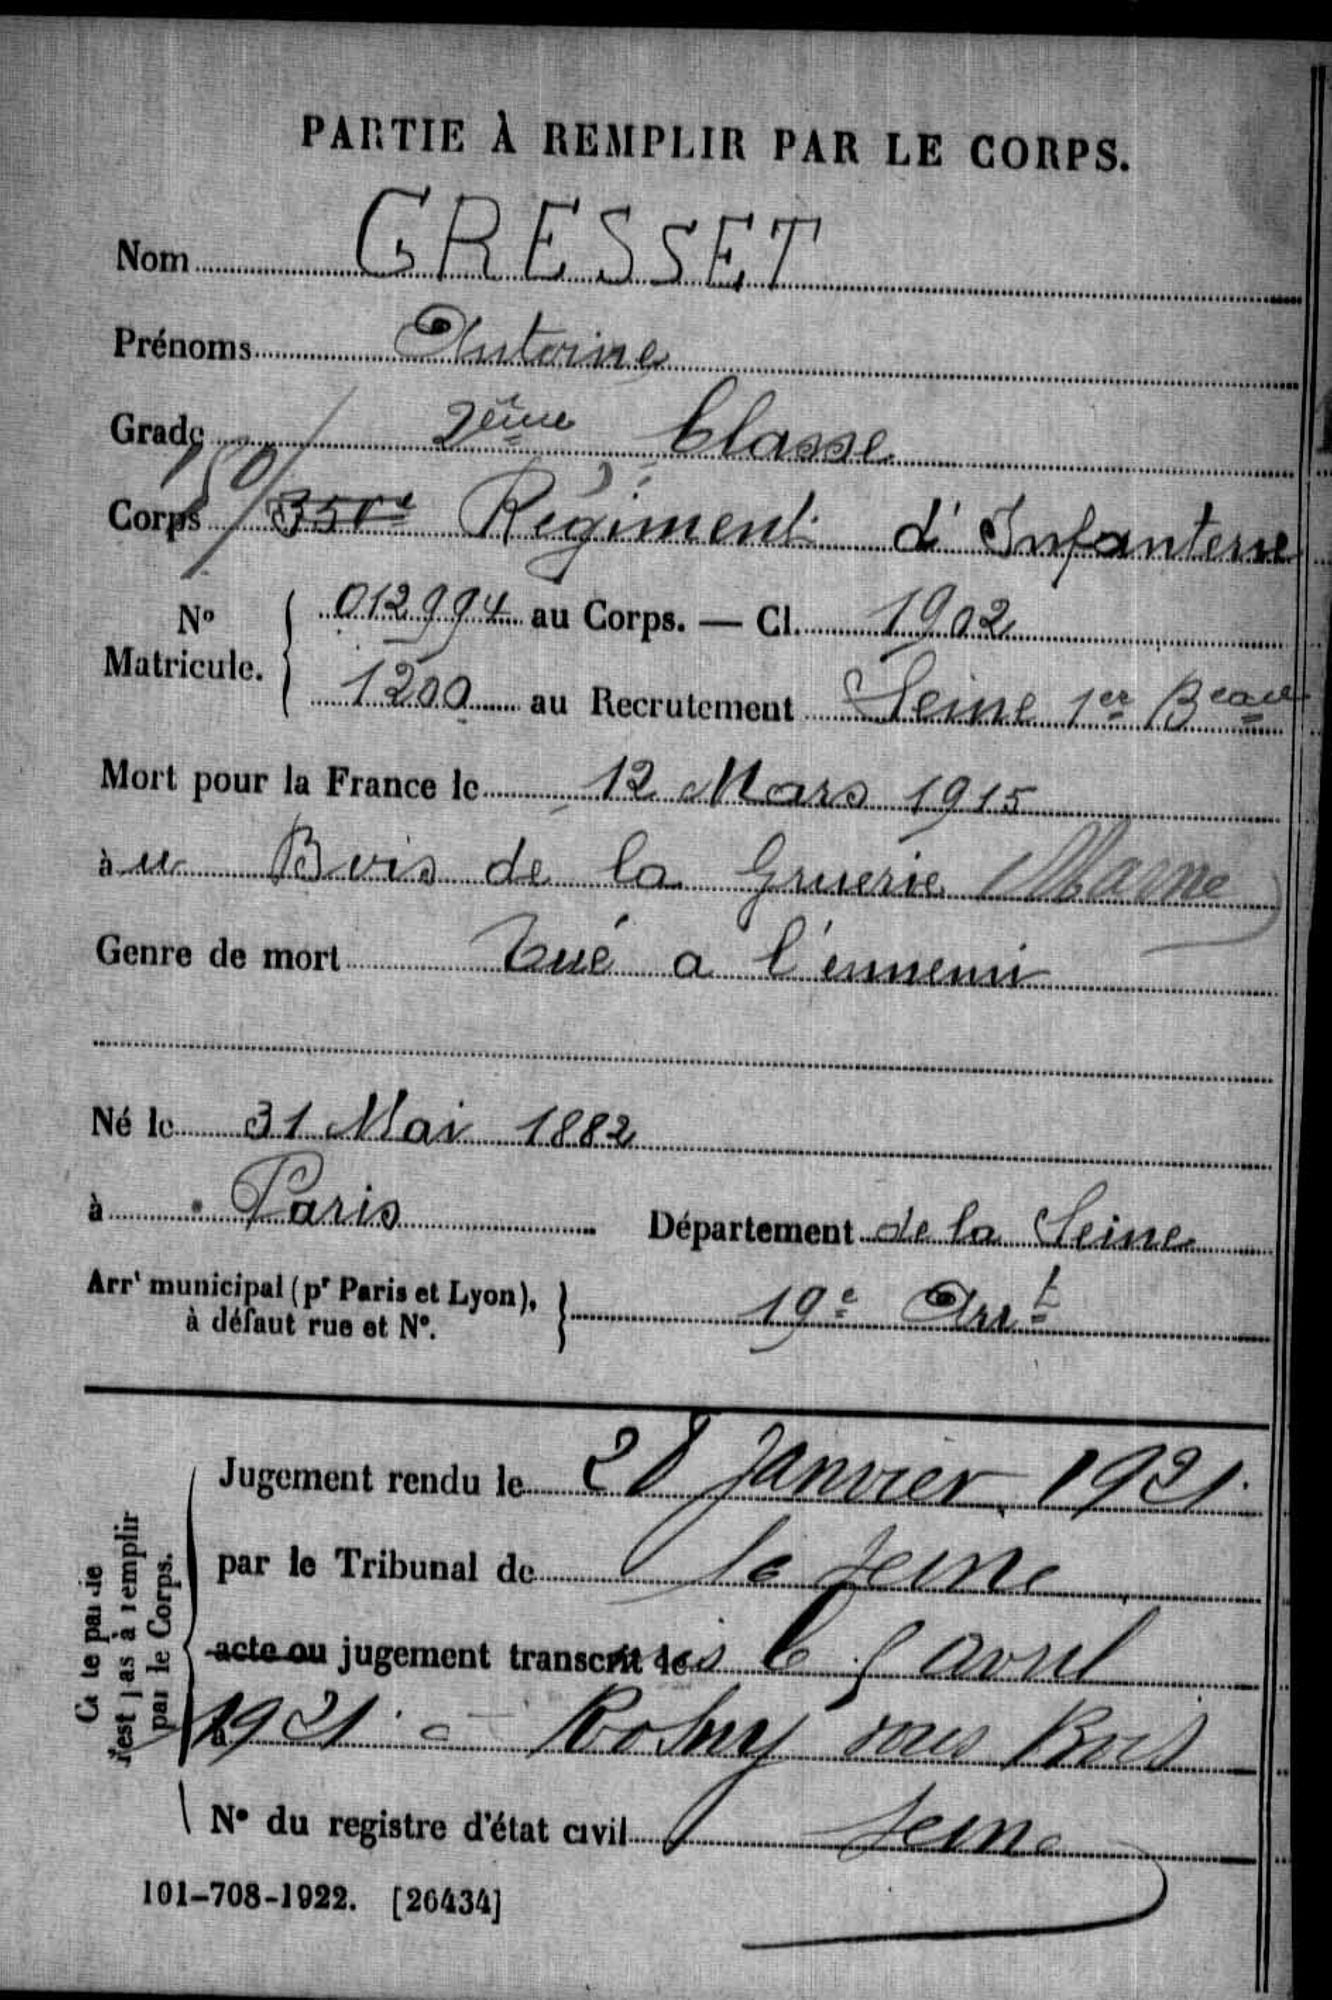 PARTIE À REMPLIR PAR LE CORPS.
Nom GRESSET
Prénoms Antoine
Grade 2ème Classe
150
Corps 350e Régiment d'Infanterie
No Matricule. 012994 au Corps. — Cl. 1902
1200 au Recrutement Seine 1er Beau
Mort pour la France le 12 Mars 1915
au Bois de la Gruerie (Marne)
Genre de mort Tué a l'ennemi
Né le 31 Mai 1882
à Paris Département de la Seine
Arrt municipal (pr Paris et Lyon), à défaut rue et No. 19e Arrt
Cette partie n'est pas à remplir par le Corps.
Jugement rendu le 28 Janvier 1921
par le Tribunal de la Seine
acte ou jugement transcrit le 5 avril
1921 à Rosny sous Bois
No du registre d'état civil Seine
101-708-1922. [26434]